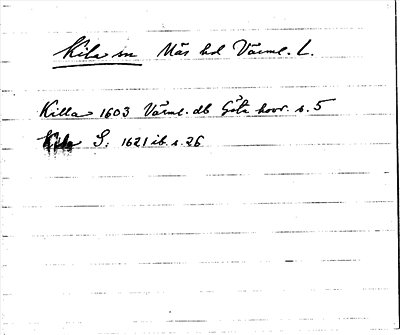 Kila sn Näs hd Värml. L.
Killa 1603 Värml. db Göta hovr. s. 5
Kila S: 1621 ib. s. 26